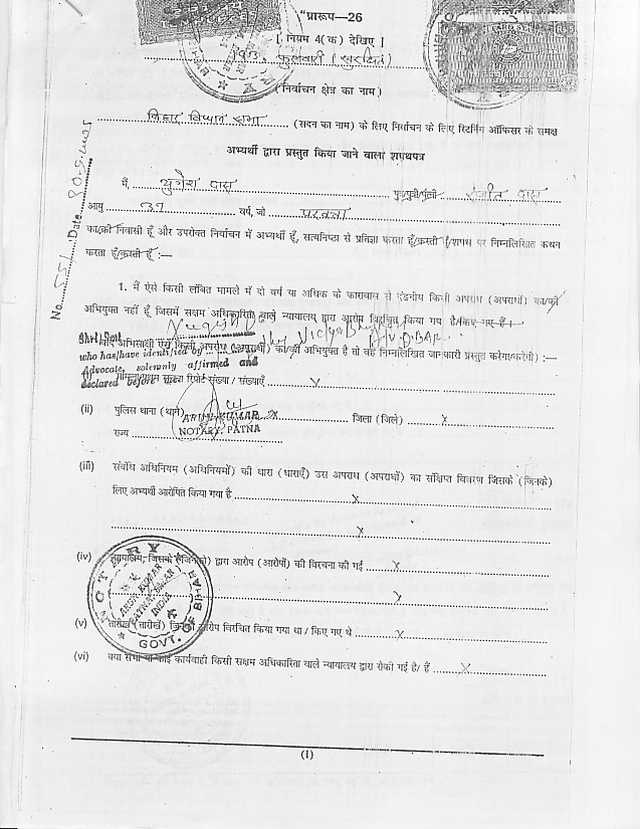 "प्रारूप—26
[ नियम 4(क) देखिए ]
फुलवारी (सुरक्षित)
(निर्वाचन क्षेत्र का नाम)
बिहार विधान सभा (सदन का नाम) के लिए निर्वाचन के लिए रिटर्निंग ऑफिसर के समक्ष
अभ्यर्थी द्वारा प्रस्तुत किया जाने वाला शपथपत्र
मैं, दास पुत्र/पुत्री/पत्नी दास
आयु 37 वर्ष, जो परसा
का/की निवासी हूँ और उपरोक्त निर्वाचन में अभ्यर्थी हूँ, सत्यनिष्ठा से प्रतिज्ञा करता हूँ/करती हूँ/शपथ पर निम्नलिखित कथन
करता हूँ/करती हूँ :—
No. 551 Date
1. मैं ऐसे किसी लंबित मामले में दो वर्ष या अधिक के कारावास से दंडनीय किसी अपराध (अपराधों) का/की
अभियुक्त नहीं हूँ जिसमें सक्षम अधिकारिता वाले न्यायालय द्वारा आरोप विरचित किया गया है/किए गए हैं।
Shri/Smt
का/की अभियुक्त है तो वह निम्नलिखित जानकारी प्रस्तुत करेगा/करेगी) :—
who has/have identified by
Advocate, solemnly affirmed and
declared before me
रिपोर्ट संख्या / संख्याएँ x
(ii) पुलिस थाना (थाने) x जिला (जिले) x
ARUN KUMAR
राज्य
NOTARY, PATNA
(iii) संबंधित अधिनियम (अधिनियमों) की धारा (धाराएँ) उस अपराध (अपराधों) का संक्षिप्त विवरण जिसके (जिनके)
लिए अभ्यर्थी आरोपित किया गया है x
x
(iv) न्यायालय, जिसके (जिनके) द्वारा आरोप (आरोपों) की विरचना की गई x
x
NOTARY
ARUN KUMAR
PATNA, BIHAR
INDIA
GOVT. OF BIHAR
(v) तारीख (तारीखें) जिनको आरोप विरचित किया गया था / किए गए थे x
(vi) क्या सभी या कोई कार्यवाही किसी सक्षम अधिकारिता वाले न्यायालय द्वारा रोकी गई है/ हैं x
(1)